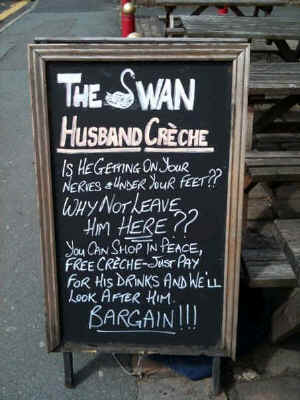 THE SWAN
HUSBAND CRÈCHE
IS HE GETTING ON YOUR
NERVES & UNDER YOUR FEET??
WHY NOT LEAVE
HIM HERE??
YOU CAN SHOP IN PEACE,
FREE CRÈCHE - JUST PAY
FOR HIS DRINKS AND WE'LL
LOOK AFTER HIM.
BARGAIN!!!